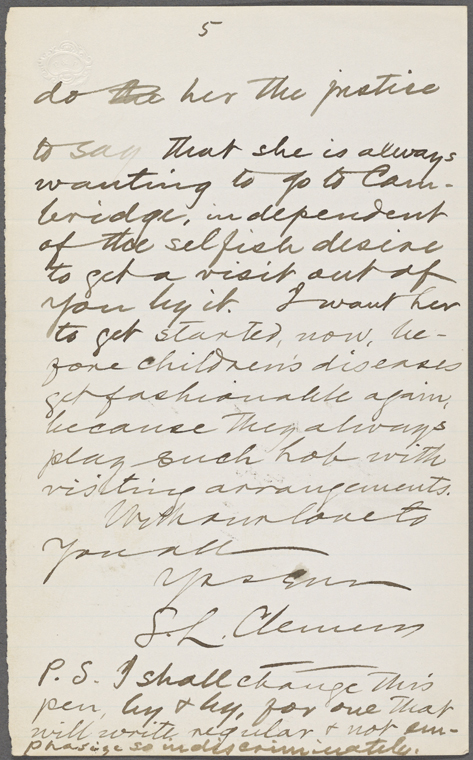 5
do the her the justice
to say that she is always
wanting to go to Cam-
bridge, independent
of the selfish desire
to get a visit out of
you by it. I want her
to get started, now, be-
fore children's diseases
get fashionable again,
because they always
play such hob with
visiting arrangements.
With our love to
you all
Yrs Ever
S. L. Clemens
P.S. I shall change this
pen, by & by, for one that
will write regular & not em-
phasize so indiscriminately.